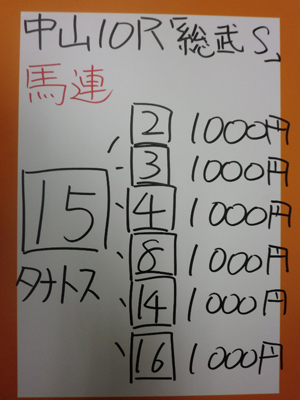 中山10R「総武S」
馬連
15
タナトス
2 1000円
3 1000円
4 1000円
8 1000円
14 1000円
16 1000円